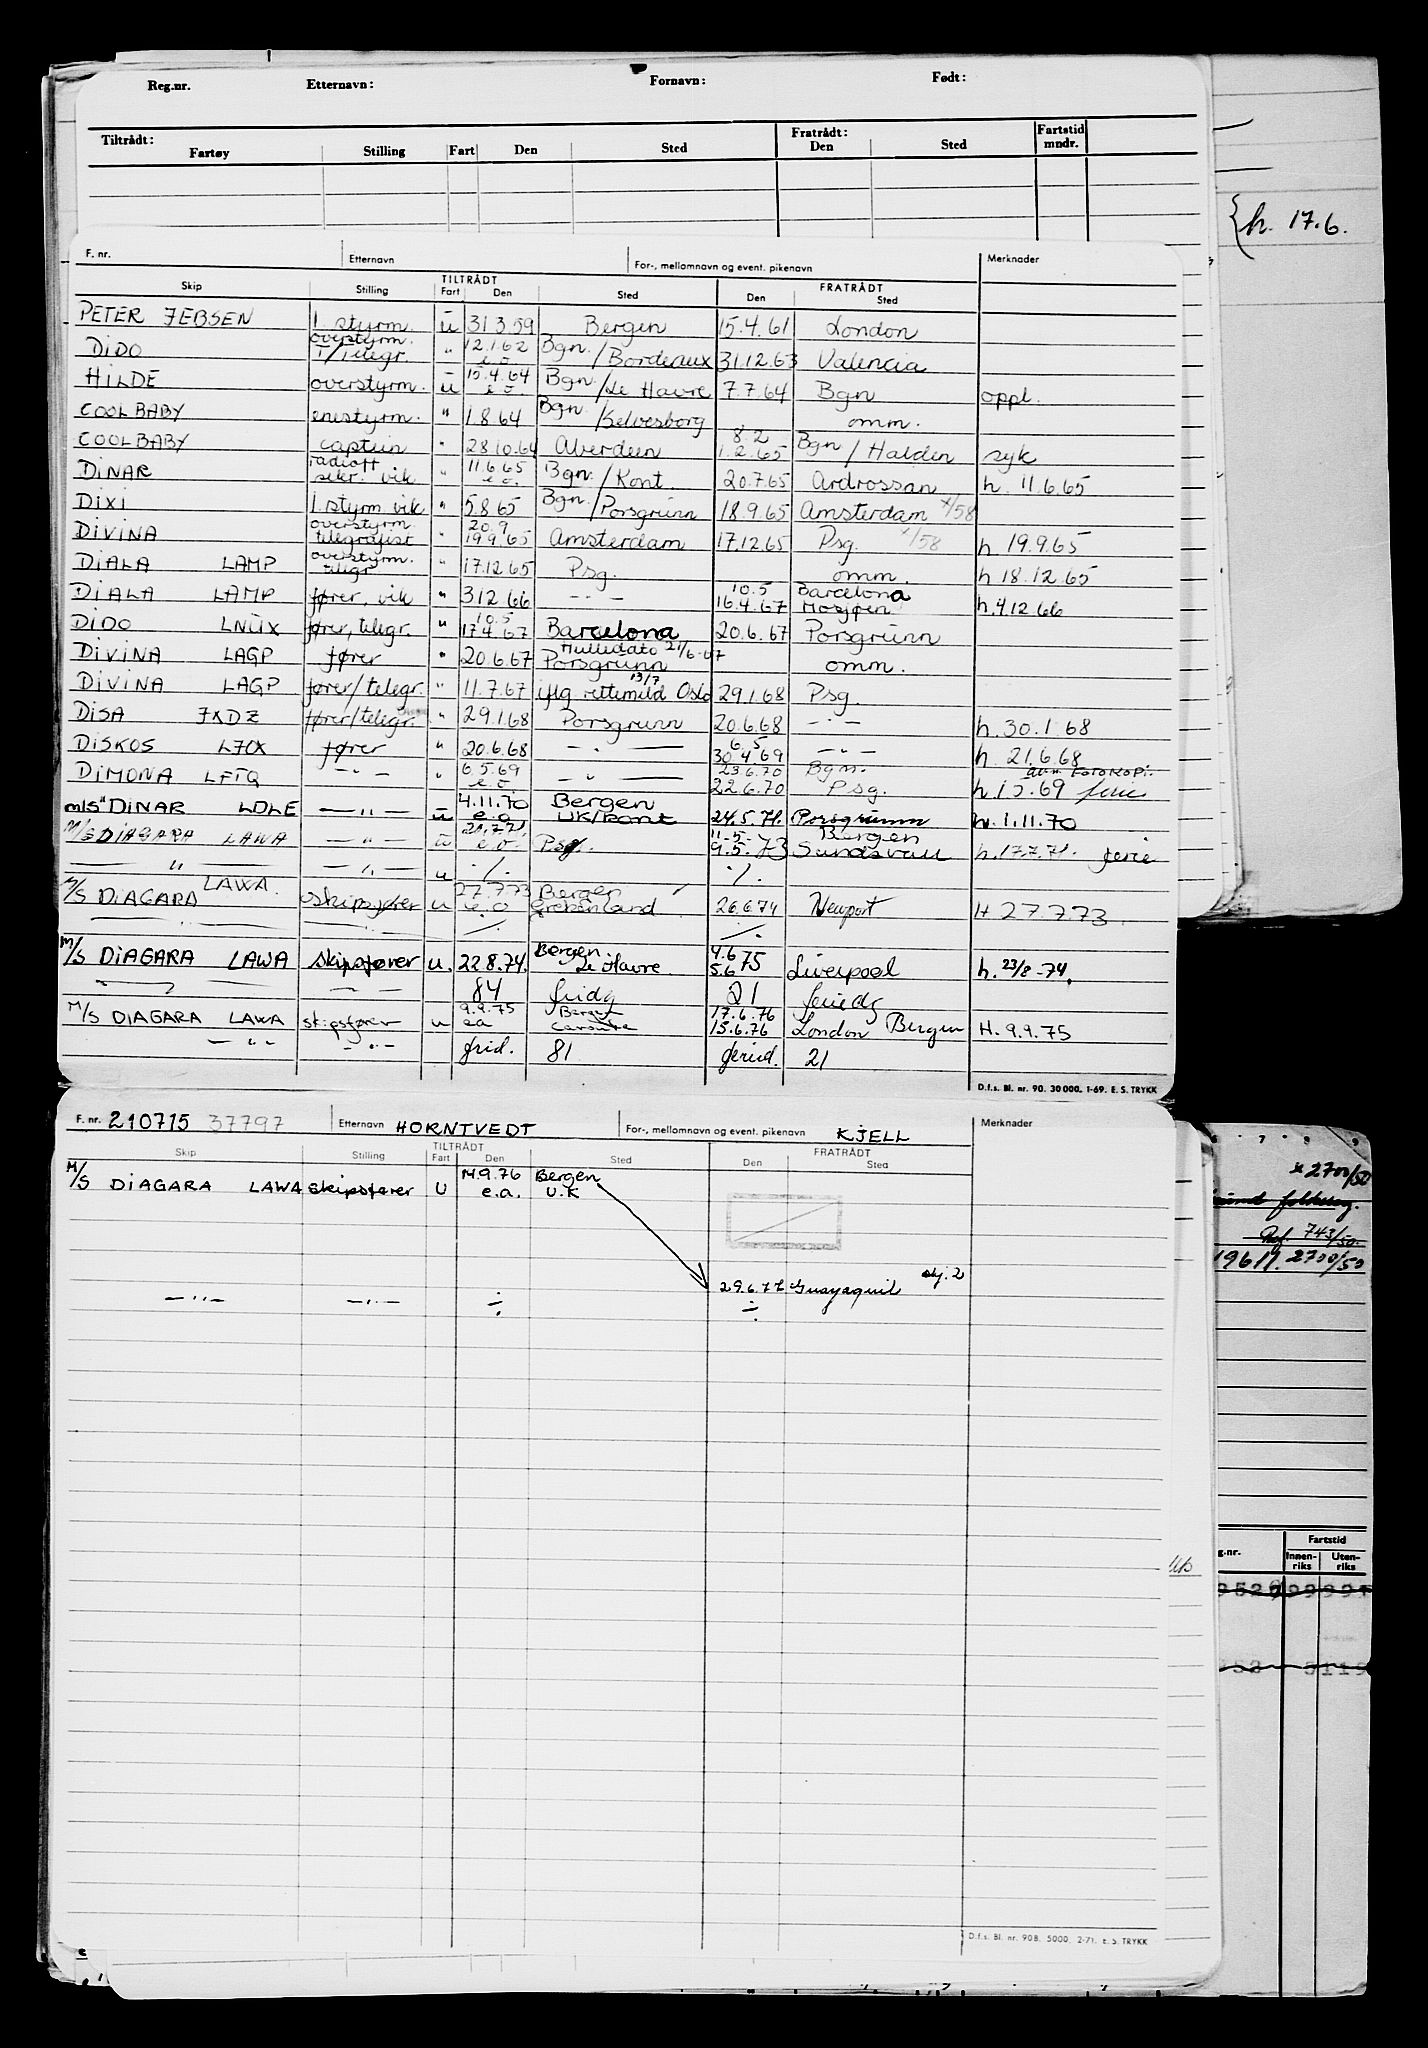 Reg.nr. Etternavn: Fornavn: Født:
Tiltrådt: Fratrådt: Fartstid
Fartøy Stilling Fart Den Sted Den Sted mndr.
{h. 17.6.
F. nr. Etternavn For-, mellomnavn og event. pikenavn Merknader
TILTRÅDT FRATRÅDT
Skip Stilling Fart Den Sted Den Sted
PETER JEBSEN 1. styrm. u 31 3.59 Bergen 15.4.61 London
DIDO overstyrm. 1/Telegr. " 12.1.62 e.o. Bgn./Bordeaux 31.12.63 Valencia
HILDE overstyrm. u 15.4.64 e.o. Bgn./Le Havre 7.7.64 Bgn oppl.
COOLBABY enestyrm. " 1.8.64 Bgn./Selvesborg omm.
COOLBABY captein " 28.10.64 Aberdeen 8.2 1.2.65 Bgn/Halden syk
DINAR radioff sekr. vik " 11.6.65 e.o. Bgn./Kont. 20.7.65 Ardrossan h. 11.6.65
DIXI 1. styrm. vik " 5.8.65 Bgn./Porsgrunn 18.9.65 Amsterdam /58
DIVINA overstyrm. telegrafist " 20.9 19.9.65 Amsterdam 17.12.65 Psg. /58 h. 19.9.65
DIALA LAMP overstyrm. telegr " 17.12.65 Psg. omm. h 18.12.65
DIALA LAMP fører, vik " 3.12.66 - " - 10.5 16.4.67 Barcelona Mosjøen h. 4.12.66
DIDO LNUX fører, telegr. " 10.5 17.4.67 Barcelona 20.6.67 Porsgrunn
DIVINA LAGP fører " 20.6.67 Hulledato 21/6-67 Porsgrunn omm.
DIVINA LAGP fører/telegr. " 11.7.67 iflg rettemeld 13/7 Oslo 29.1.68 Psg.
DISA JXDZ fører/telegr. " 29.1.68 Porsgrunn 20.6.68 - " - h. 30.1.68
DISKOS LJOX fører " 20.6.68 - " - 6.5 30.4.69 - " - h. 21.6.68
DIMONA LFTQ - " - " 6.5.69 e.o - " - 23.6.70 22.6.70 Bgn. Psg. FOTOKOPI. ferie
m/s" DINAR LDLE - " - u 4.11.70 e.o Bergen UK/Kont 24.5.71. Porsgrunn h. 1.11.70
M/S DIAGARA LAWA - " - u e.o. Psg. 11-5- 9.5.73 Bergen Sundsvall h. 17.7.71. ferie
- " - - " - u ./. ./.
M/S DIAGARA LAWA. skipsfører u 27.7.73 e.o Bergen Grekenland 26.6.74 Newport H 27.7.73.
M/S DIAGARA LAWA skipsfører u. 22.8.74. Bergen Le Havre 4.6 5.6 75 Liverpool h. 23/8-74.
- " - - " - 84 fridg 21 feriedg
M/S DIAGARA LAWA skipsfører u 9.9.75 ea Bergen 17.6.76 15.6.76 London Bergen H. 9.9.75
- " - - " - frid. 81 feried. 21
D.f.s. Bl. nr. 90. 30 000. 1-69. E. S. TRYKK
F. nr. 210715 37797 Etternavn HORNTVEDT For-, mellomnavn og event. pikenavn KJELL Merknader
TILTRÅDT FRATRÅDT
Skip Stilling Fart Den Sted Den Sted
M/S DIAGARA LAWA skipsfører U 14.9.76 e.a. Bergen U.K
29.6.77 Guayaquil skj. 2
- " - - " - ÷ ÷
D.f.s. Bl. nr. 90B. 5000. 2-71. E. S. TRYKK
6 7 8 9
x 2700/50
743/50.
19611. 2700/50
g.nr. Fartstid
Innen-riks Uten-riks